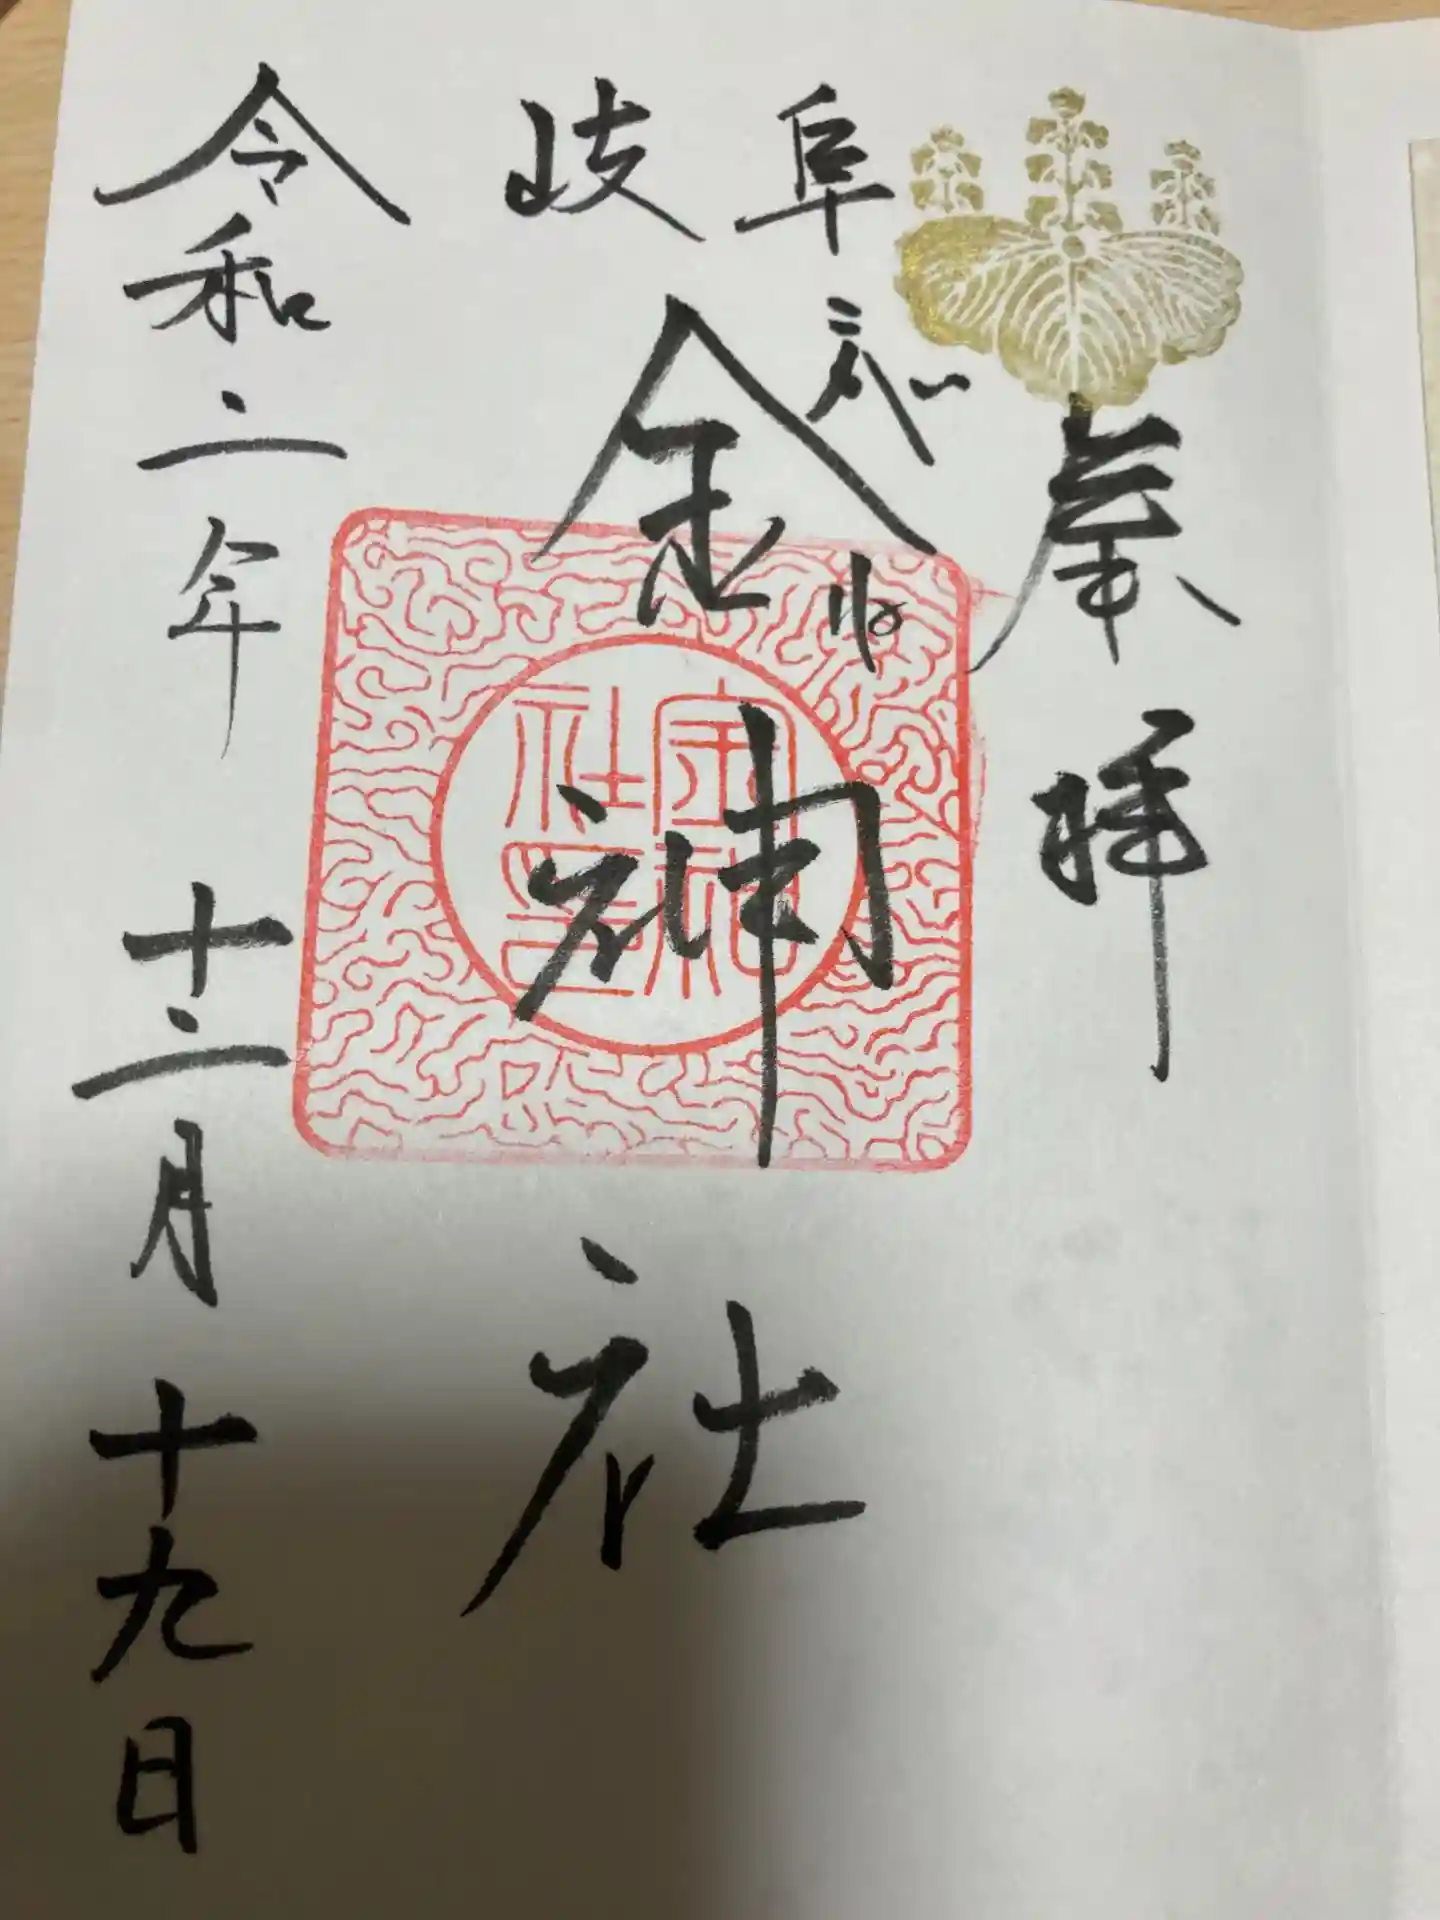 奉拝
岐阜
こがね
金神社
金神社印
令和二年 十二月十九日